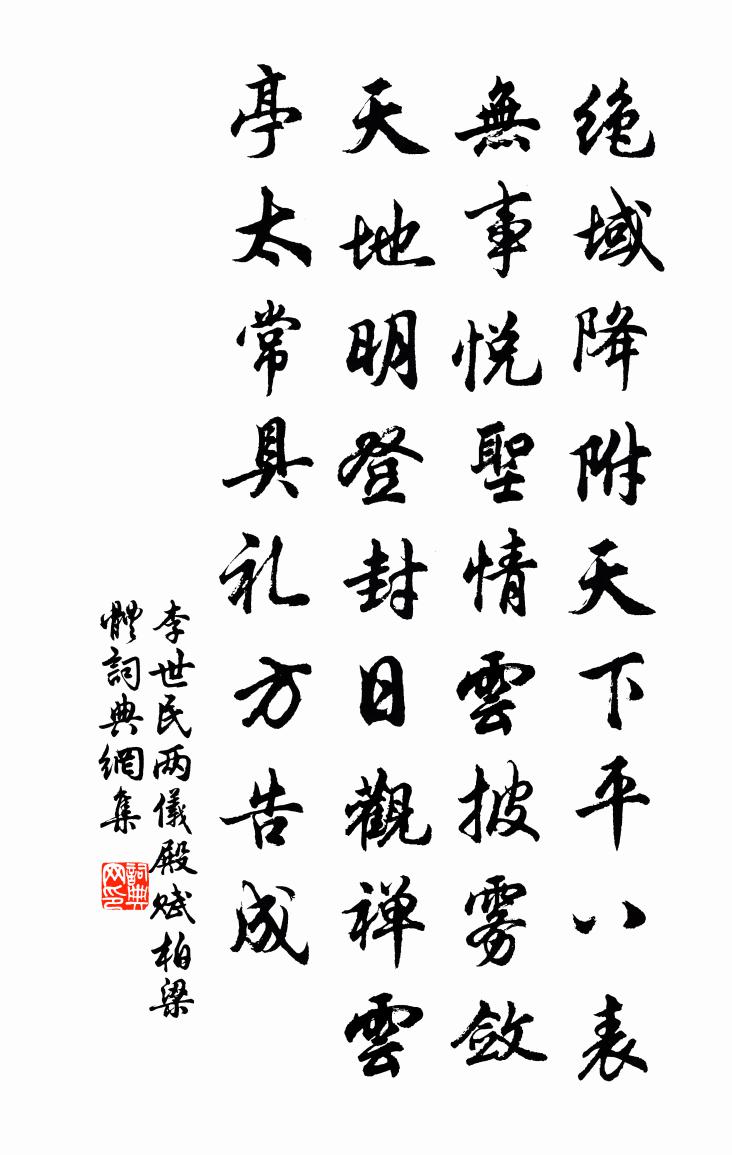 绝域降附天下平八表
無事悦聖情雲披雾斂
天地明登封日觀禅雲
亭太常具礼方告成
李世民两儀殿赋柏梁
體詞典網集
詞典
网印